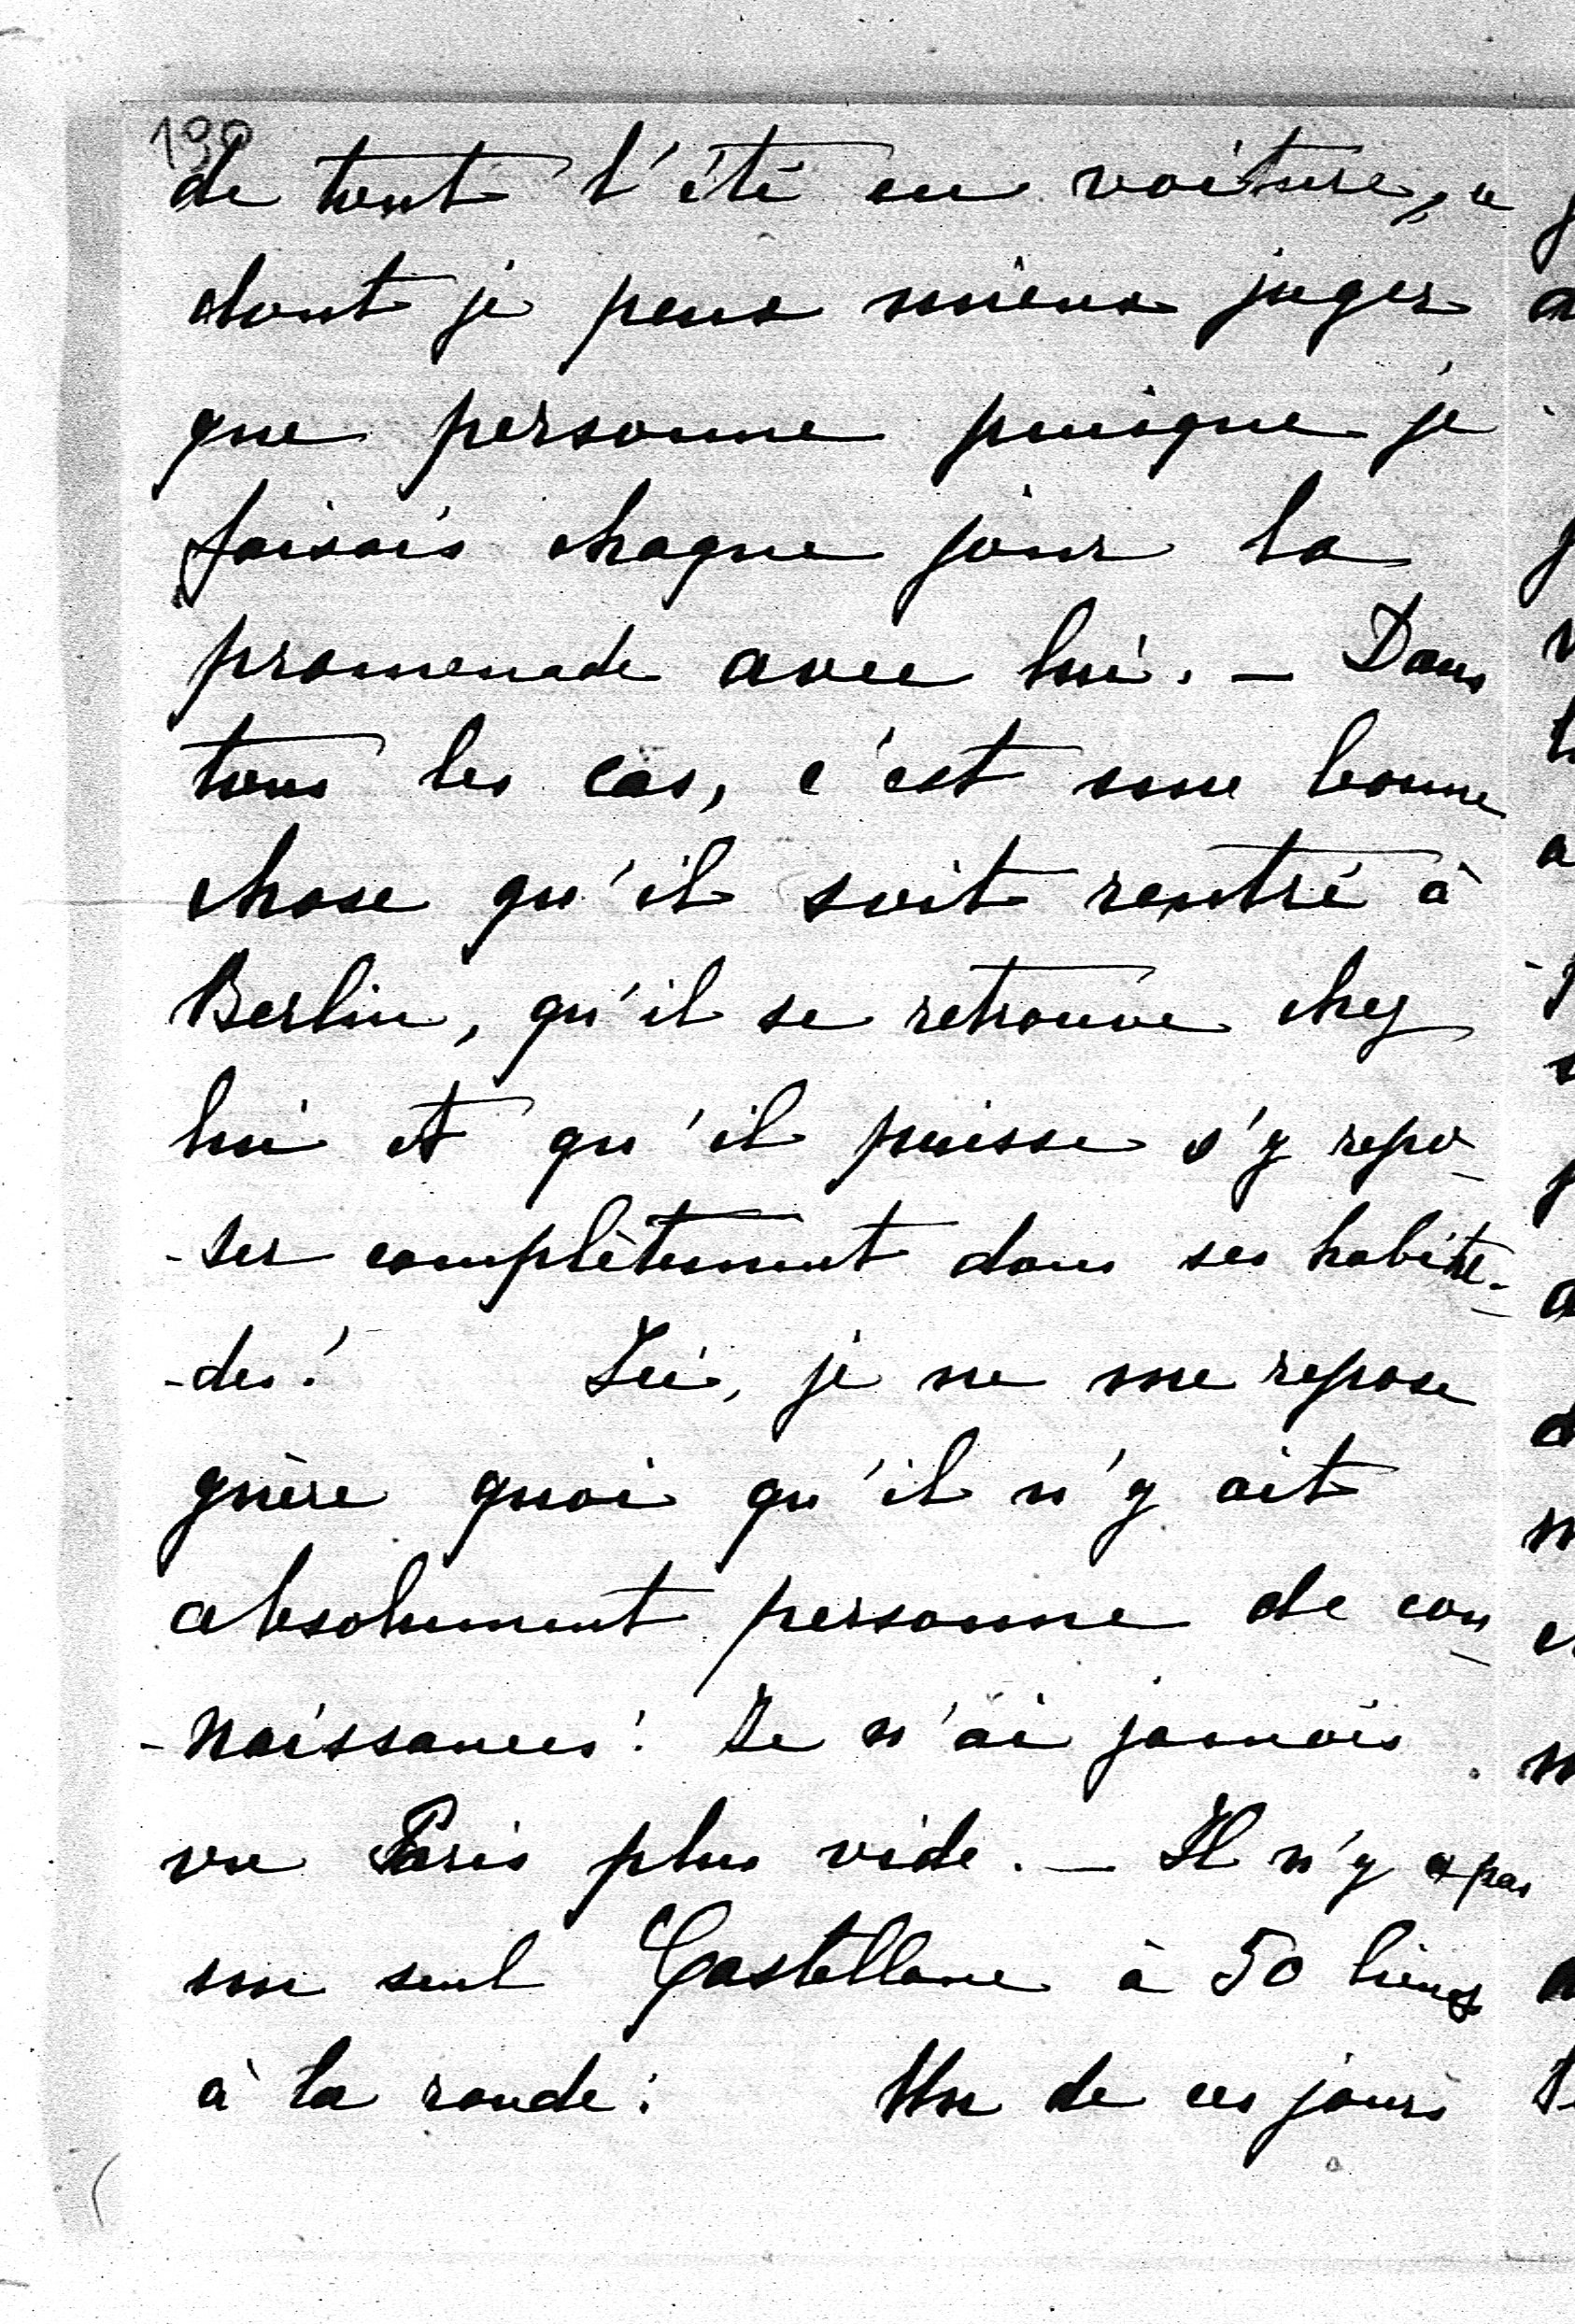 190
de tout l'été en voiture, ce
dont je peux mieux juger
que personne puisque je
faisais chaque jour la
promenade avec lui. — Dans
tous les cas, c'est une bonne
chose qu'il soit rentré à
Berlin, qu'il se retrouve chez
lui et qu'il puisse s'y repo-
-ser complètement dans ses habitu-
-des! Ici, je ne me repose
guère quoi qu'il n'y ait
absolument personne de con-
-naissances! Je n'ai jamais
vu Paris plus vide. — Il n'y a pas
un seul Castellane à 50 lieues
à la ronde! Un de ces jours